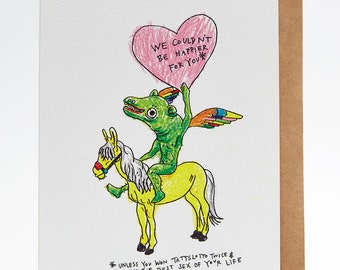 WE COULDN'T
BE HAPPIER
FOR YOU*
* UNLESS YOU WON TATTSLOTTO TWICE &
BEST SEX OF YOUR LIFE